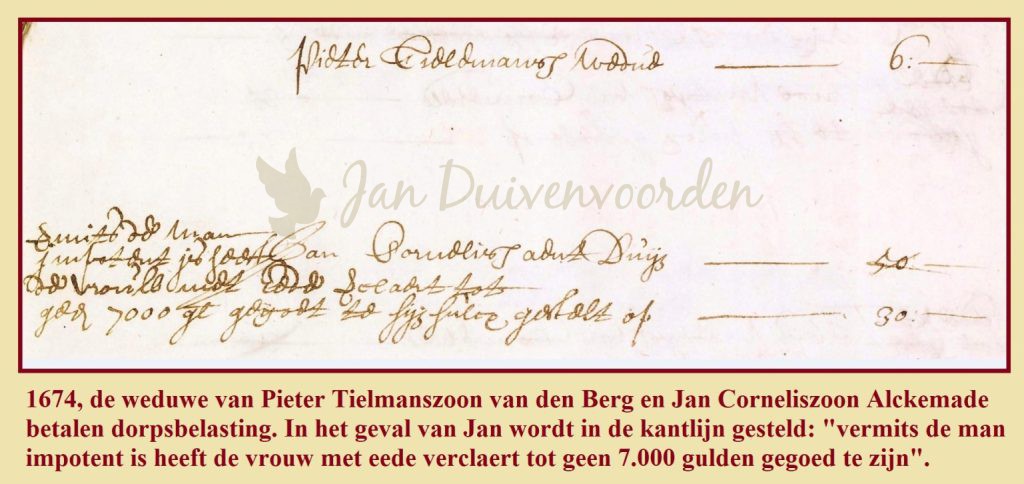 Pieter Tielemansz wedue 6:-
Jan Duivenvoorden
Vmits de man
impotent is heeft Jan Cornelisz aent Duijz 50:-
de vrouw met eede verclaert tot
geen 7000 gl gegoet te sijn gestelt op 30:-
1674, de weduwe van Pieter Tielmanszoon van den Berg en Jan Corneliszoon Alckemade
betalen dorpsbelasting. In het geval van Jan wordt in de kantlijn gesteld: "vermits de man
impotent is heeft de vrouw met eede verclaert tot geen 7.000 gulden gegoed te zijn".